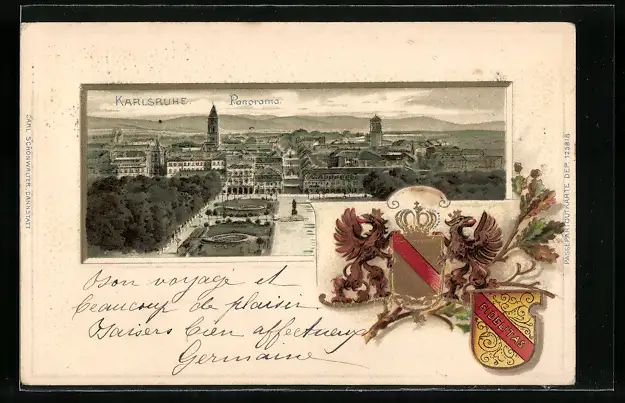 KARLSRUHE Panorama.
CARL SCHÖNWALTER, CANNSTATT
PASSEPARTOUTKARTE DEP. 123818
FIDELITAS
Bon voyage et
beaucoup de plaisir
Baisers bien affectueux
Germaine